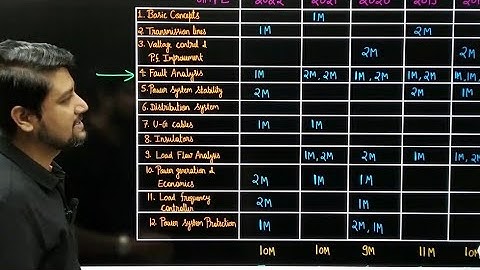 2022 2021 2020 2019
1. Basic Concepts 1M
2 Transmission lines 1M 2M
3. Voltage control & P.f. Improvement 2M 2M
4. Fault Analysis 1M 2M, 2M 1M, 2M 1M, 2M 1M, 1M
5. Power System Stability 2M 2M 1M
6. Distribution System
7. U-G cables 1M 1M
8. Insulators
9. Load Flow Analysis 1M, 2M 2M 1M
10. Power generation & Economics 2M 1M 1M
11. Load frequency controller 2M 1M
12. Power System Protection 1M 2M, 1M
10M 10M 9M 11M 10M